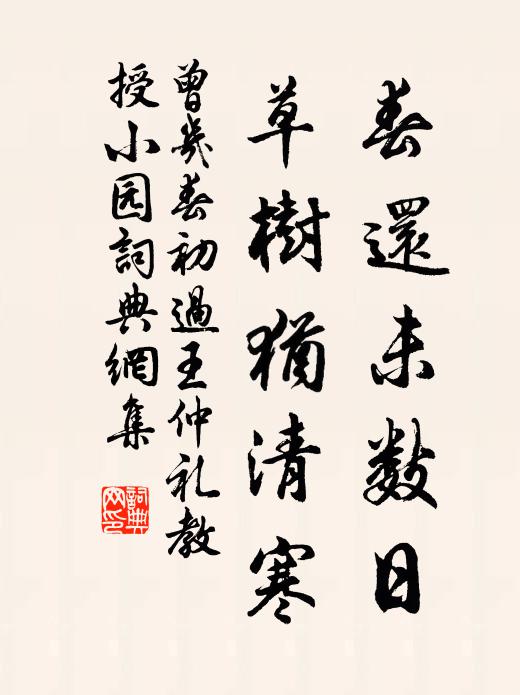 春還未數日
草樹猶清寒
曾幾春初過王仲礼教
授小园詞典網集
詞典
网印